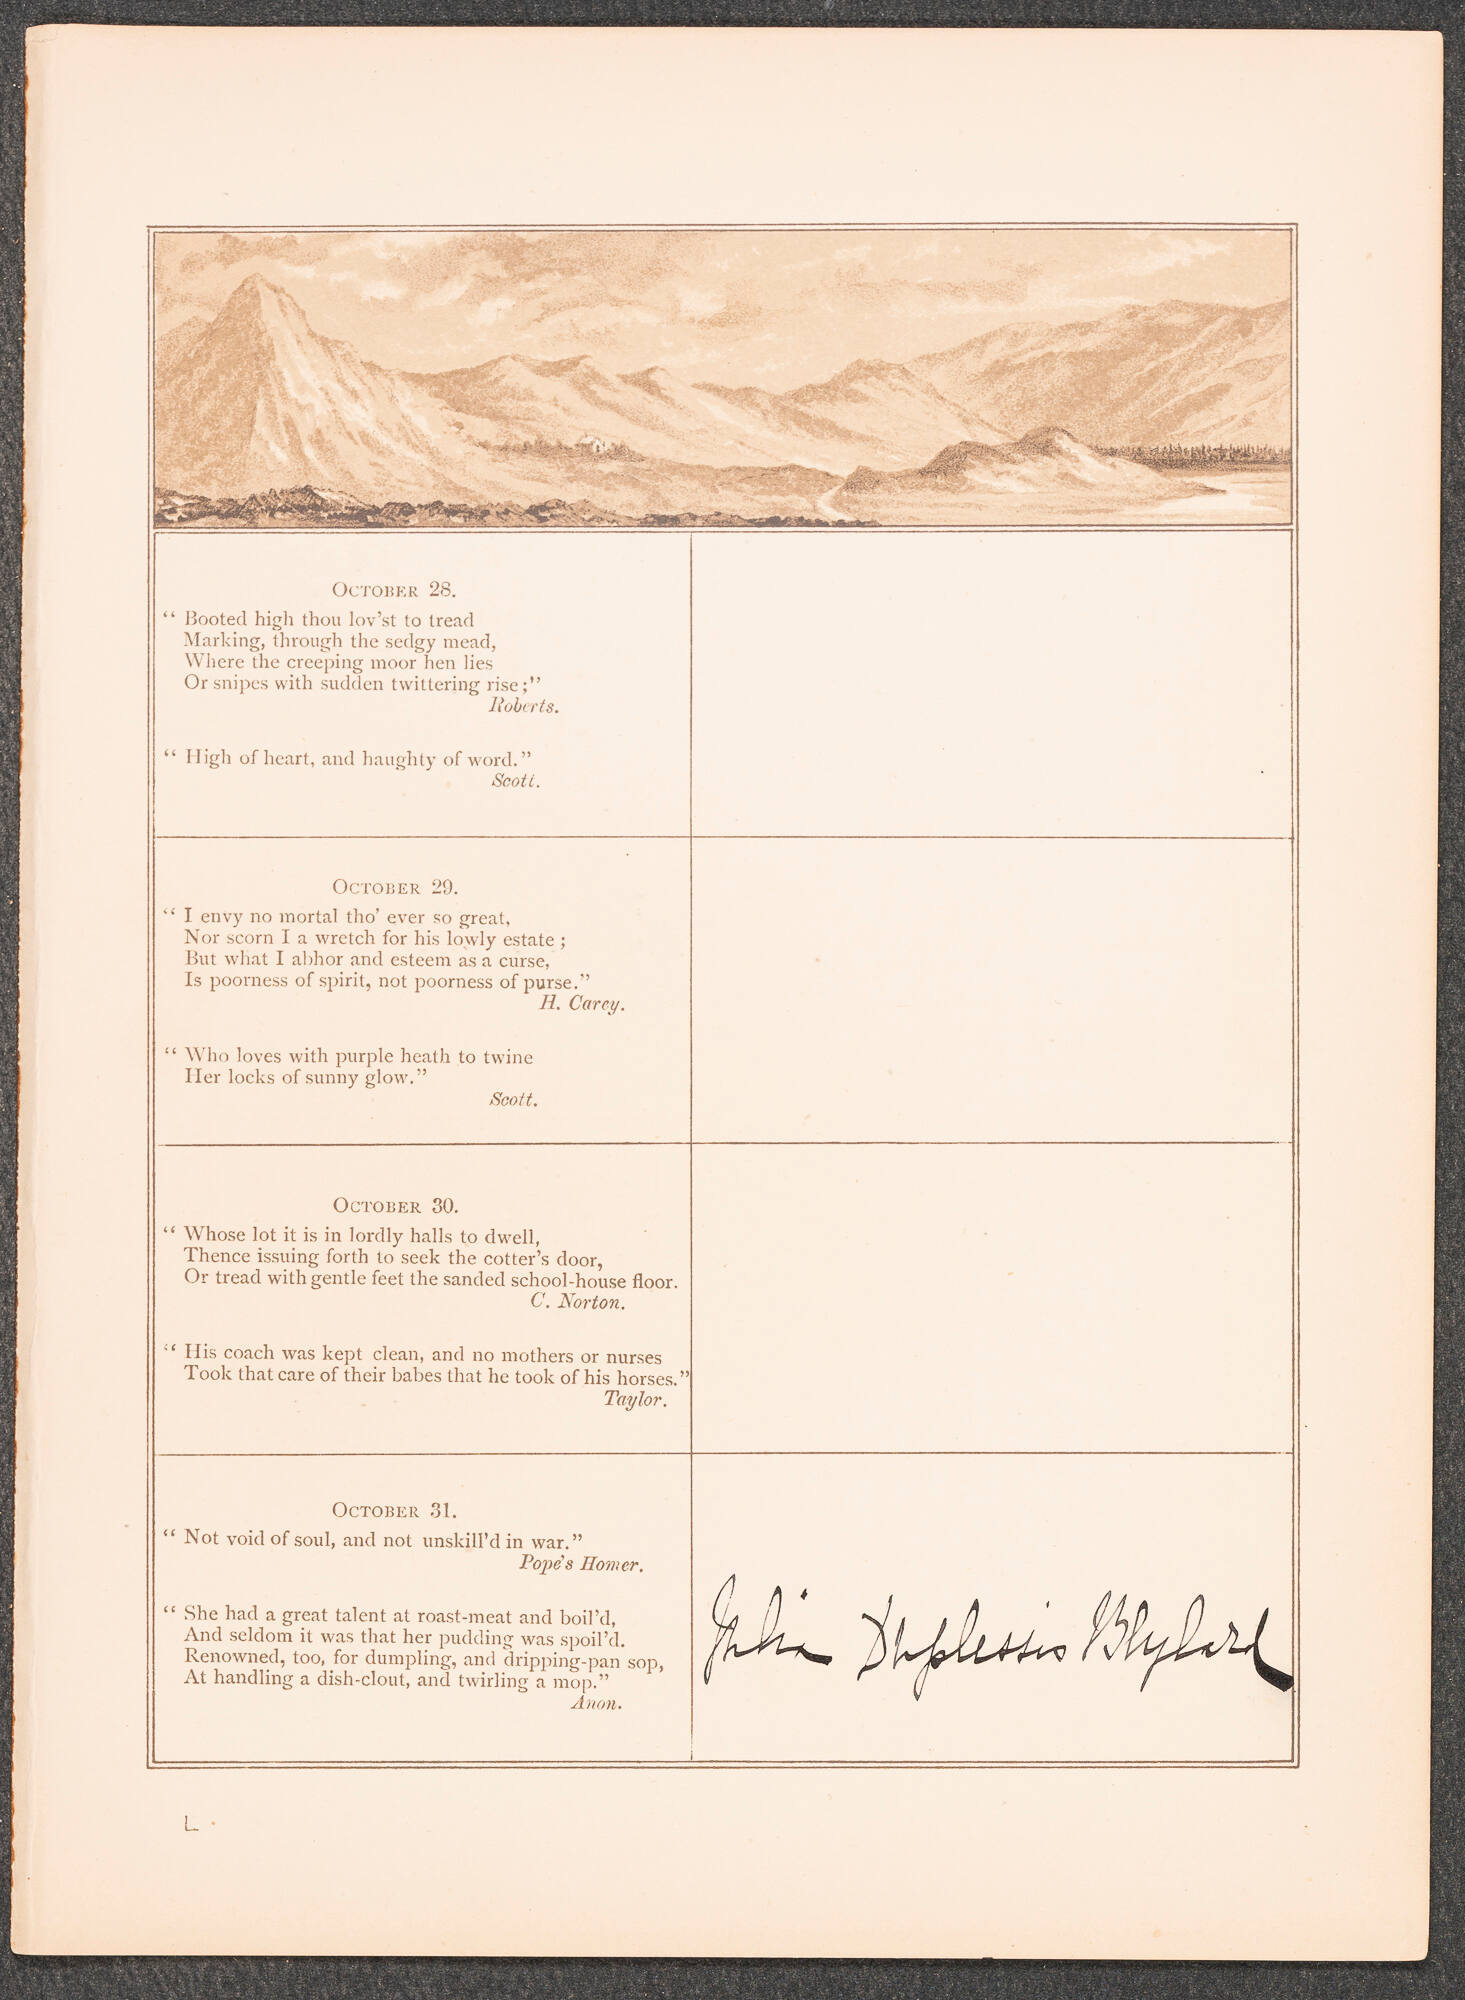 October 28.
“ Booted high thou lov’st to tread
Marking, through the sedgy mead,
Where the creeping moor hen lies
Or snipes with sudden twittering rise;”
Roberts.
“ High of heart, and haughty of word.”
Scott.
October 29.
“ I envy no mortal tho’ ever so great,
Nor scorn I a wretch for his lowly estate ;
But what I abhor and esteem as a curse,
Is poorness of spirit, not poorness of purse.”
H. Carey.
“ Who loves with purple heath to twine
Her locks of sunny glow.”
Scott.
October 30.
“ Whose lot it is in lordly halls to dwell,
Thence issuing forth to seek the cotter’s door,
Or tread with gentle feet the sanded school-house floor.
C. Norton.
“ His coach was kept clean, and no mothers or nurses
Took that care of their babes that he took of his horses.”
Taylor.
October 31.
“ Not void of soul, and not unskill’d in war.”
Pope’s Homer.
“ She had a great talent at roast-meat and boil’d,
And seldom it was that her pudding was spoil’d.
Renowned, too, for dumpling, and dripping-pan sop,
At handling a dish-clout, and twirling a mop.”
Anon.
Julia Duplessis Blylard
L